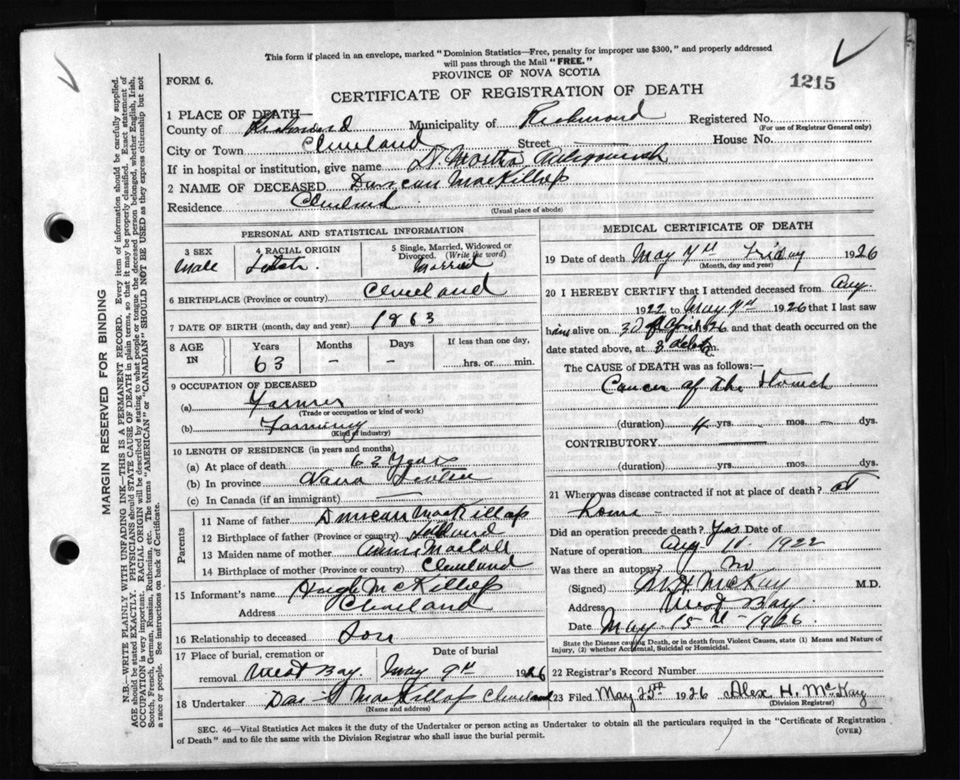 This form if placed in an envelope, marked "Dominion Statistics—Free, penalty for improper use $300," and properly addressed
will pass through the Mail "FREE."
FORM 6.
PROVINCE OF NOVA SCOTIA
1215
CERTIFICATE OF REGISTRATION OF DEATH
1 PLACE OF DEATH—
County of Richmond Municipality of Richmond Registered No.
(For use of Registrar General only)
City or Town Cleveland Street House No.
If in hospital or institution, give name St Martha
2 NAME OF DECEASED Duncan MacKillop
Residence Cleveland
(Usual place of abode)
PERSONAL AND STATISTICAL INFORMATION
3 SEX 4 RACIAL ORIGIN 5 Single, Married, Widowed or
Divorced. (Write the word)
Male Scotch Married
6 BIRTHPLACE (Province or country) Cleveland
7 DATE OF BIRTH (month, day and year) 1863
8 AGE IN Years Months Days If less than one day,
63 - - hrs. or min.
9 OCCUPATION OF DECEASED
(a) Farmer
(Trade or occupation or kind of work)
(b) Farming
(Kind of industry)
10 LENGTH OF RESIDENCE (in years and months)
(a) At place of death 63 Years
(b) In province Nova Scotia
(c) In Canada (if an immigrant)
Parents
11 Name of father Duncan MacKillop
12 Birthplace of father (Province or country)
13 Maiden name of mother Annie MacCall
14 Birthplace of mother (Province or country) Cleveland
15 Informant's name Hugh McKillop
Address Cleveland
16 Relationship to deceased Son
17 Place of burial, cremation or removal West Bay
Date of burial May 9th 1926
18 Undertaker MacKillop Cleveland
(Name and address)
MEDICAL CERTIFICATE OF DEATH
19 Date of death May 7th Friday 1926
(Month, day and year)
20 I HEREBY CERTIFY that I attended deceased from Aug.
1922 to May 7th 1926 that I last saw
him alive on 30 April 26 and that death occurred on the
date stated above, at m.
The CAUSE OF DEATH was as follows:—
Cancer of the Stomach
(duration) 4 yrs. mos. dys.
CONTRIBUTORY
(duration) yrs. mos. dys.
21 Where was disease contracted if not at place of death? at
home
Did an operation precede death? Yes Date of
Nature of operation Aug 11. 1922
Was there an autopsy? No
(Signed) McKay M.D.
Address West Bay
Date May 15th 1926
State the Disease causing Death, or in death from Violent Causes, state (1) Means and Nature of
Injury, (2) whether Accidental, Suicidal or Homicidal.
22 Registrar's Record Number
23 Filed May 25th 1926 Alex. H. McKay
(Division Registrar)
SEC. 46—Vital Statistics Act makes it the duty of the Undertaker or person acting as Undertaker to obtain all the particulars required in the "Certificate of Registration
of Death" and to file the same with the Division Registrar who shall issue the burial permit.
(OVER)
MARGIN RESERVED FOR BINDING
N.B.—WRITE PLAINLY WITH UNFADING INK—THIS IS A PERMANENT RECORD. Every item of information should be carefully supplied.
AGE should be stated EXACTLY. PHYSICIANS should STATE CAUSE OF DEATH in plain terms, so that it may be properly classified. Exact statement of
OCCUPATION is very important. RACIAL ORIGIN will be described by stating to what people or tongue the deceased person belonged, whether English, Irish,
Scotch, French, German, Russian, Ruthenian, etc. The terms "AMERICAN" or "CANADIAN" SHOULD NOT BE USED as they express citizenship but not
a race or people. See instructions on back of Certificate.